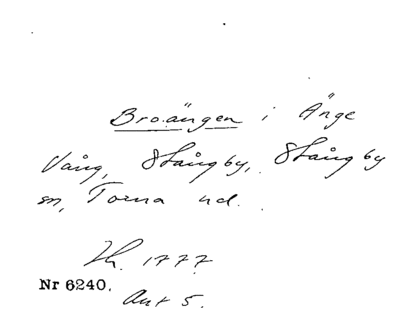 Bro.ängen i Änge
Vång, Stångby, Stångby
sn, Torna hd.
Th. 1777
Nr 6240.
Akt 5.